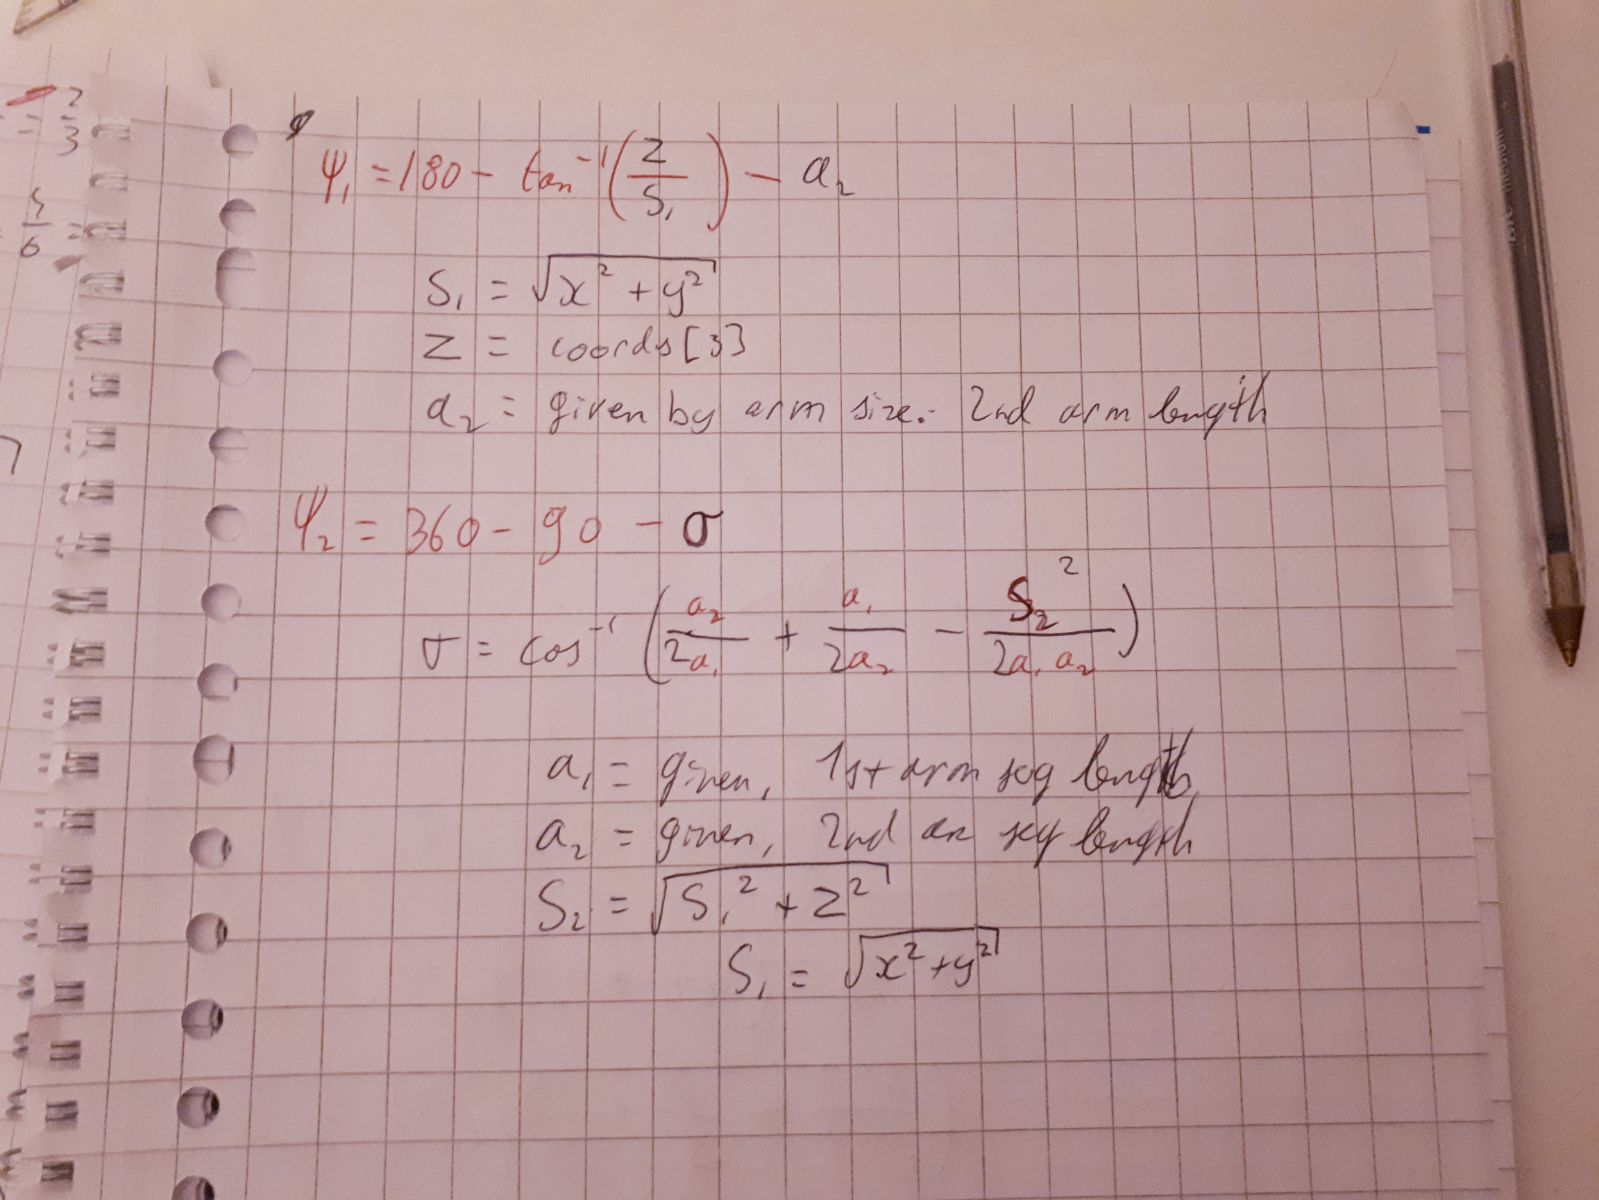 ψ₁ = 180 - tan⁻¹(z/S₁) - a₂
S₁ = √(x² + y²)
z = coords[3]
a₂ = given by arm size. 2nd arm length
ψ₂ = 360 - 90 - σ
σ = cos⁻¹(a₂/2a₁ + a₁/2a₂ - S₂²/2a₁a₂)
a₁ = given, 1st arm seg length
a₂ = given, 2nd seg length
S₂ = √(S₁² + z²)
S₁ = √(x² + y²)